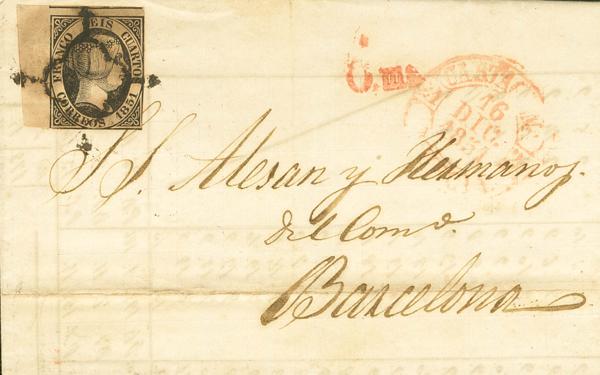 FRANCO SEIS CUARTOS
CORREOS 1851
6.ms
CARTAGENA
16
DIC.
1851
S.S. Alesan y Hermanos.
del Com.o
Barcelona